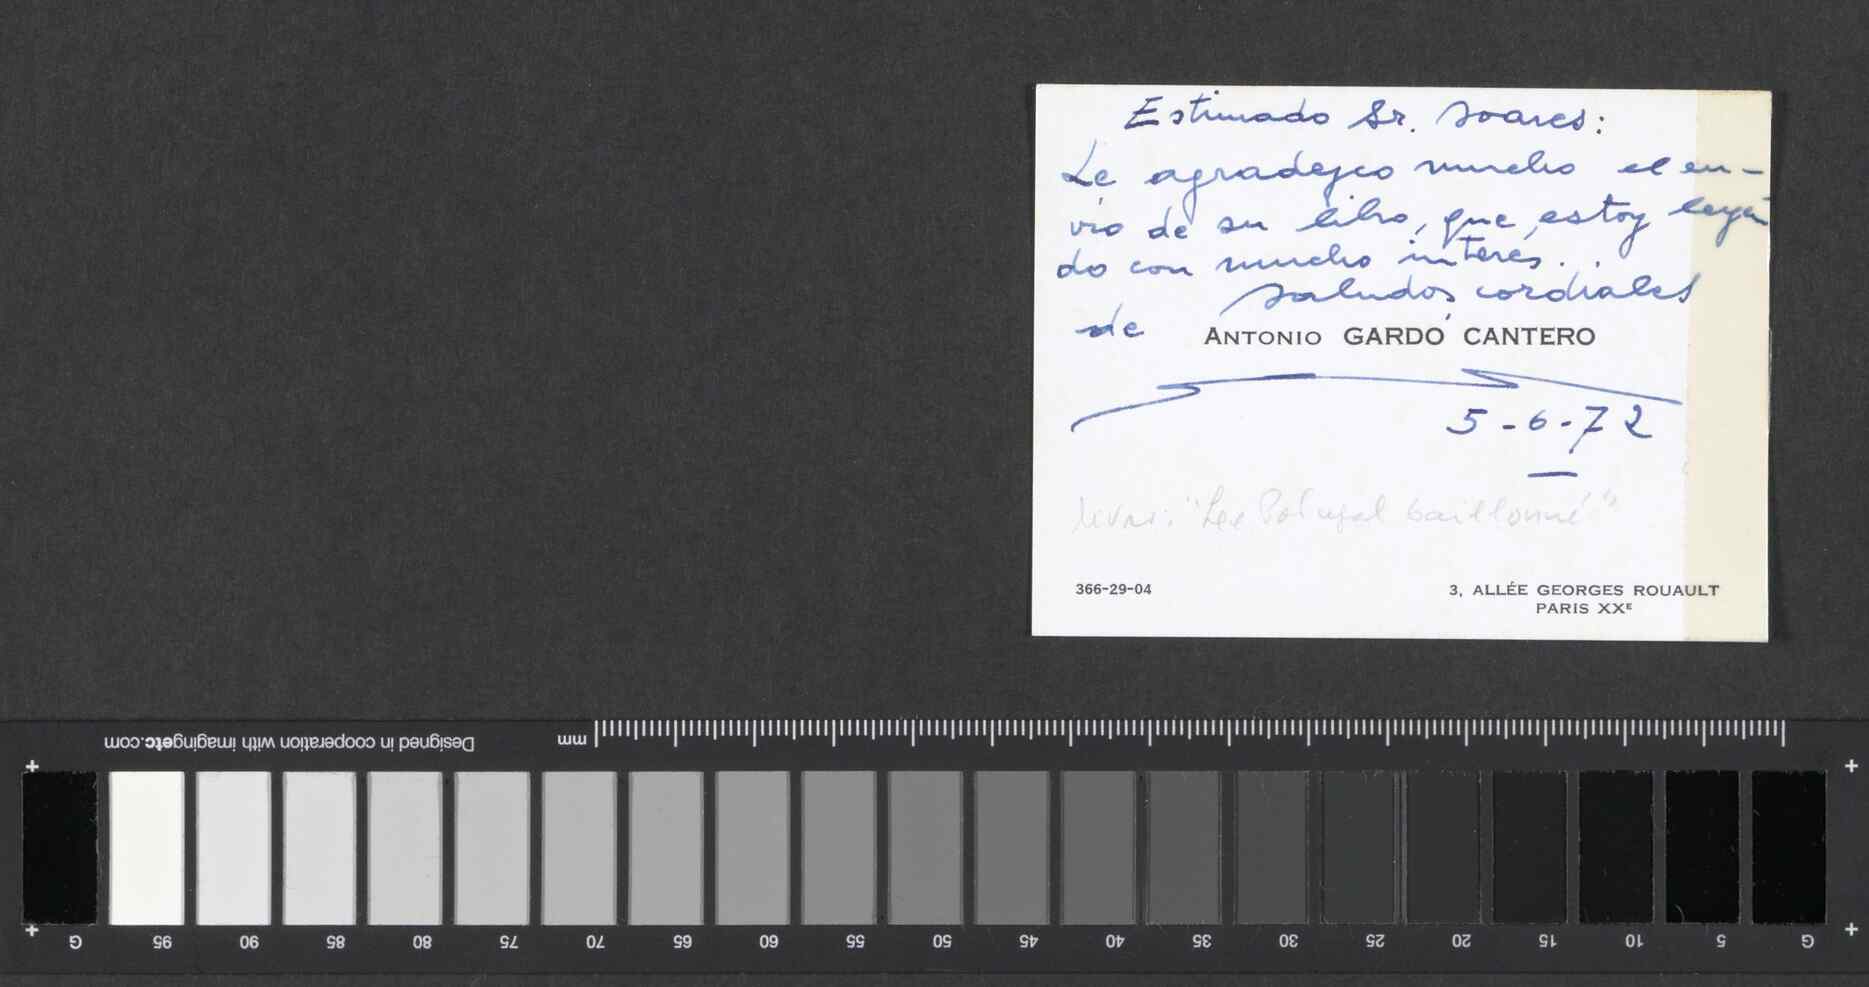 Estimado Sr. Soares:
Le agradezco mucho el en-
vío de su libro, que estoy leyen
do con mucho interés.
Saludos cordiales
de ANTONIO GARDÓ CANTERO
5-6-72
livro: "Le Portugal baillonné"
366-29-04
3, ALLÉE GEORGES ROUAULT
PARIS XXᴱ
Designed in cooperation with imagingetc.com
mm
G 95 90 85 80 75 70 65 60 55 50 45 40 35 30 25 20 15 10 5 G